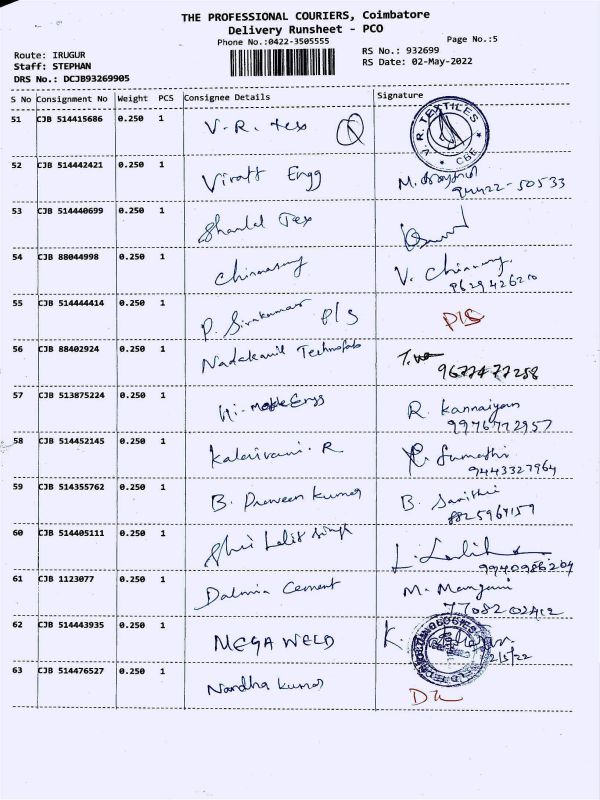 THE PROFESSIONAL COURIERS, Coimbatore
Delivery Runsheet - PCO
Phone No.:0422-3505555
Page No.:5
Route: IRUGUR
RS No.: 932699
Staff: STEPHAN
RS Date: 02-May-2022
DRS No.: DCJB93269905
S No Consignment No Weight PCS Consignee Details Signature
51 CJB 514415686 0.250 1 V. R. tex
V. R. TEXTILES * CBE *
52 CJB 514442421 0.250 1 Viratt Engg M.
94422-50533
53 CJB 514440699 0.250 1 Tex
54 CJB 88044998 0.250 1 Chinnasamy V. Chinnasamy
9629426210
55 CJB 514444414 0.250 1 P. Sivakumar P/S P/S
56 CJB 88402924 0.250 1 Technofab
9677477288
57 CJB 513875224 0.250 1 Engg R. Kannaiyan
9976772957
58 CJB 514452145 0.250 1 Kalaivani. R Sumathi
9443327964
59 CJB 514355762 0.250 1 B. Praveen Kumar B. Savithri
8825967159
60 CJB 514405111 0.250 1 Shri Lalit Singh L. Lalitha
9940986209
61 CJB 1123077 0.250 1 Dalmia Cement M. Mangani
77082 02412
62 CJB 514443935 0.250 1 MEGA WELD K.
2/5/22
63 CJB 514476527 0.250 1 Nandha Kumar